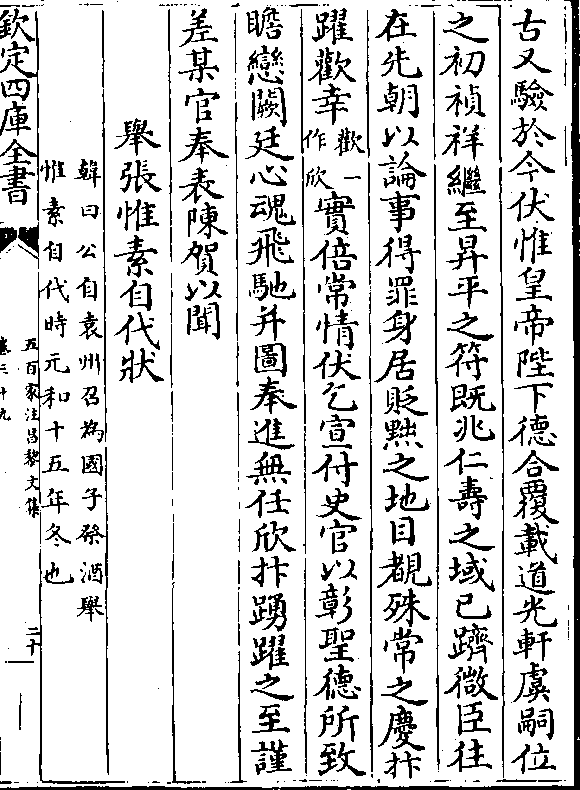 古又驗於今伏惟皇帝陛下德合覆載道光軒虞嗣位
之初禎祥繼至昇平之符既兆仁壽之域已躋微臣往
在先朝以論事得罪身居貶黜之地目覩殊常之慶抃
躍歡幸歡一作欣實倍常情伏乞宣付史官以彰聖德所致
瞻戀闕廷心魂飛馳并圖奉進無任欣抃踴躍之至謹
差某官奉表陳賀以聞
舉張惟素自代狀
韓曰公自袁州召為國子祭酒舉
惟素自代時元和十五年冬也
欽定四庫全書
五百家注昌黎文集
卷三十九
二十